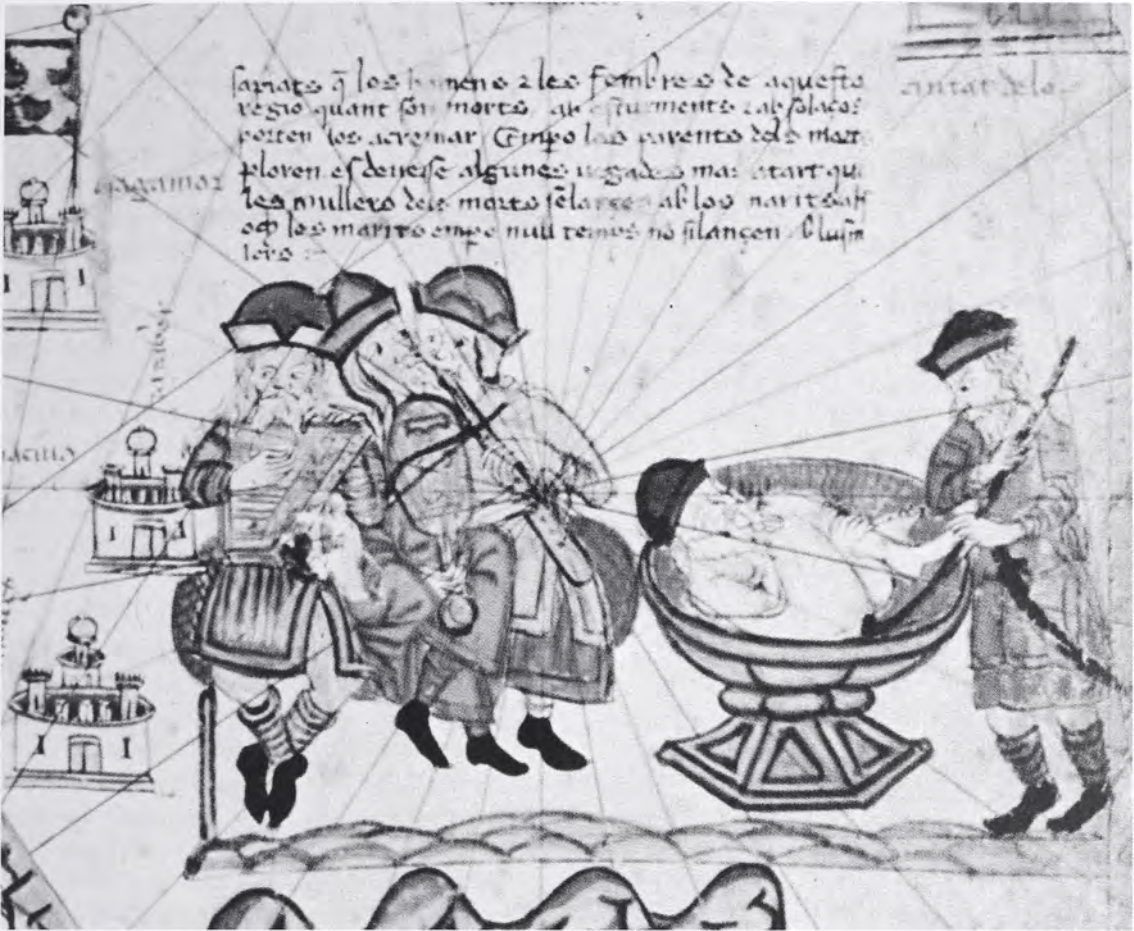 sapiats q̃ los homens ⁊ les fembres de aquesta
ciutat de lop
regio quant son morts ab esturments ⁊ ab solaços
porten los acremar Empo los parents dels morts
ploren es deuese algunes vegades mas atart que
les mullers dels morts se lançen ab los marits al f
och los marits empo null temps no silançen ab lus m
lers